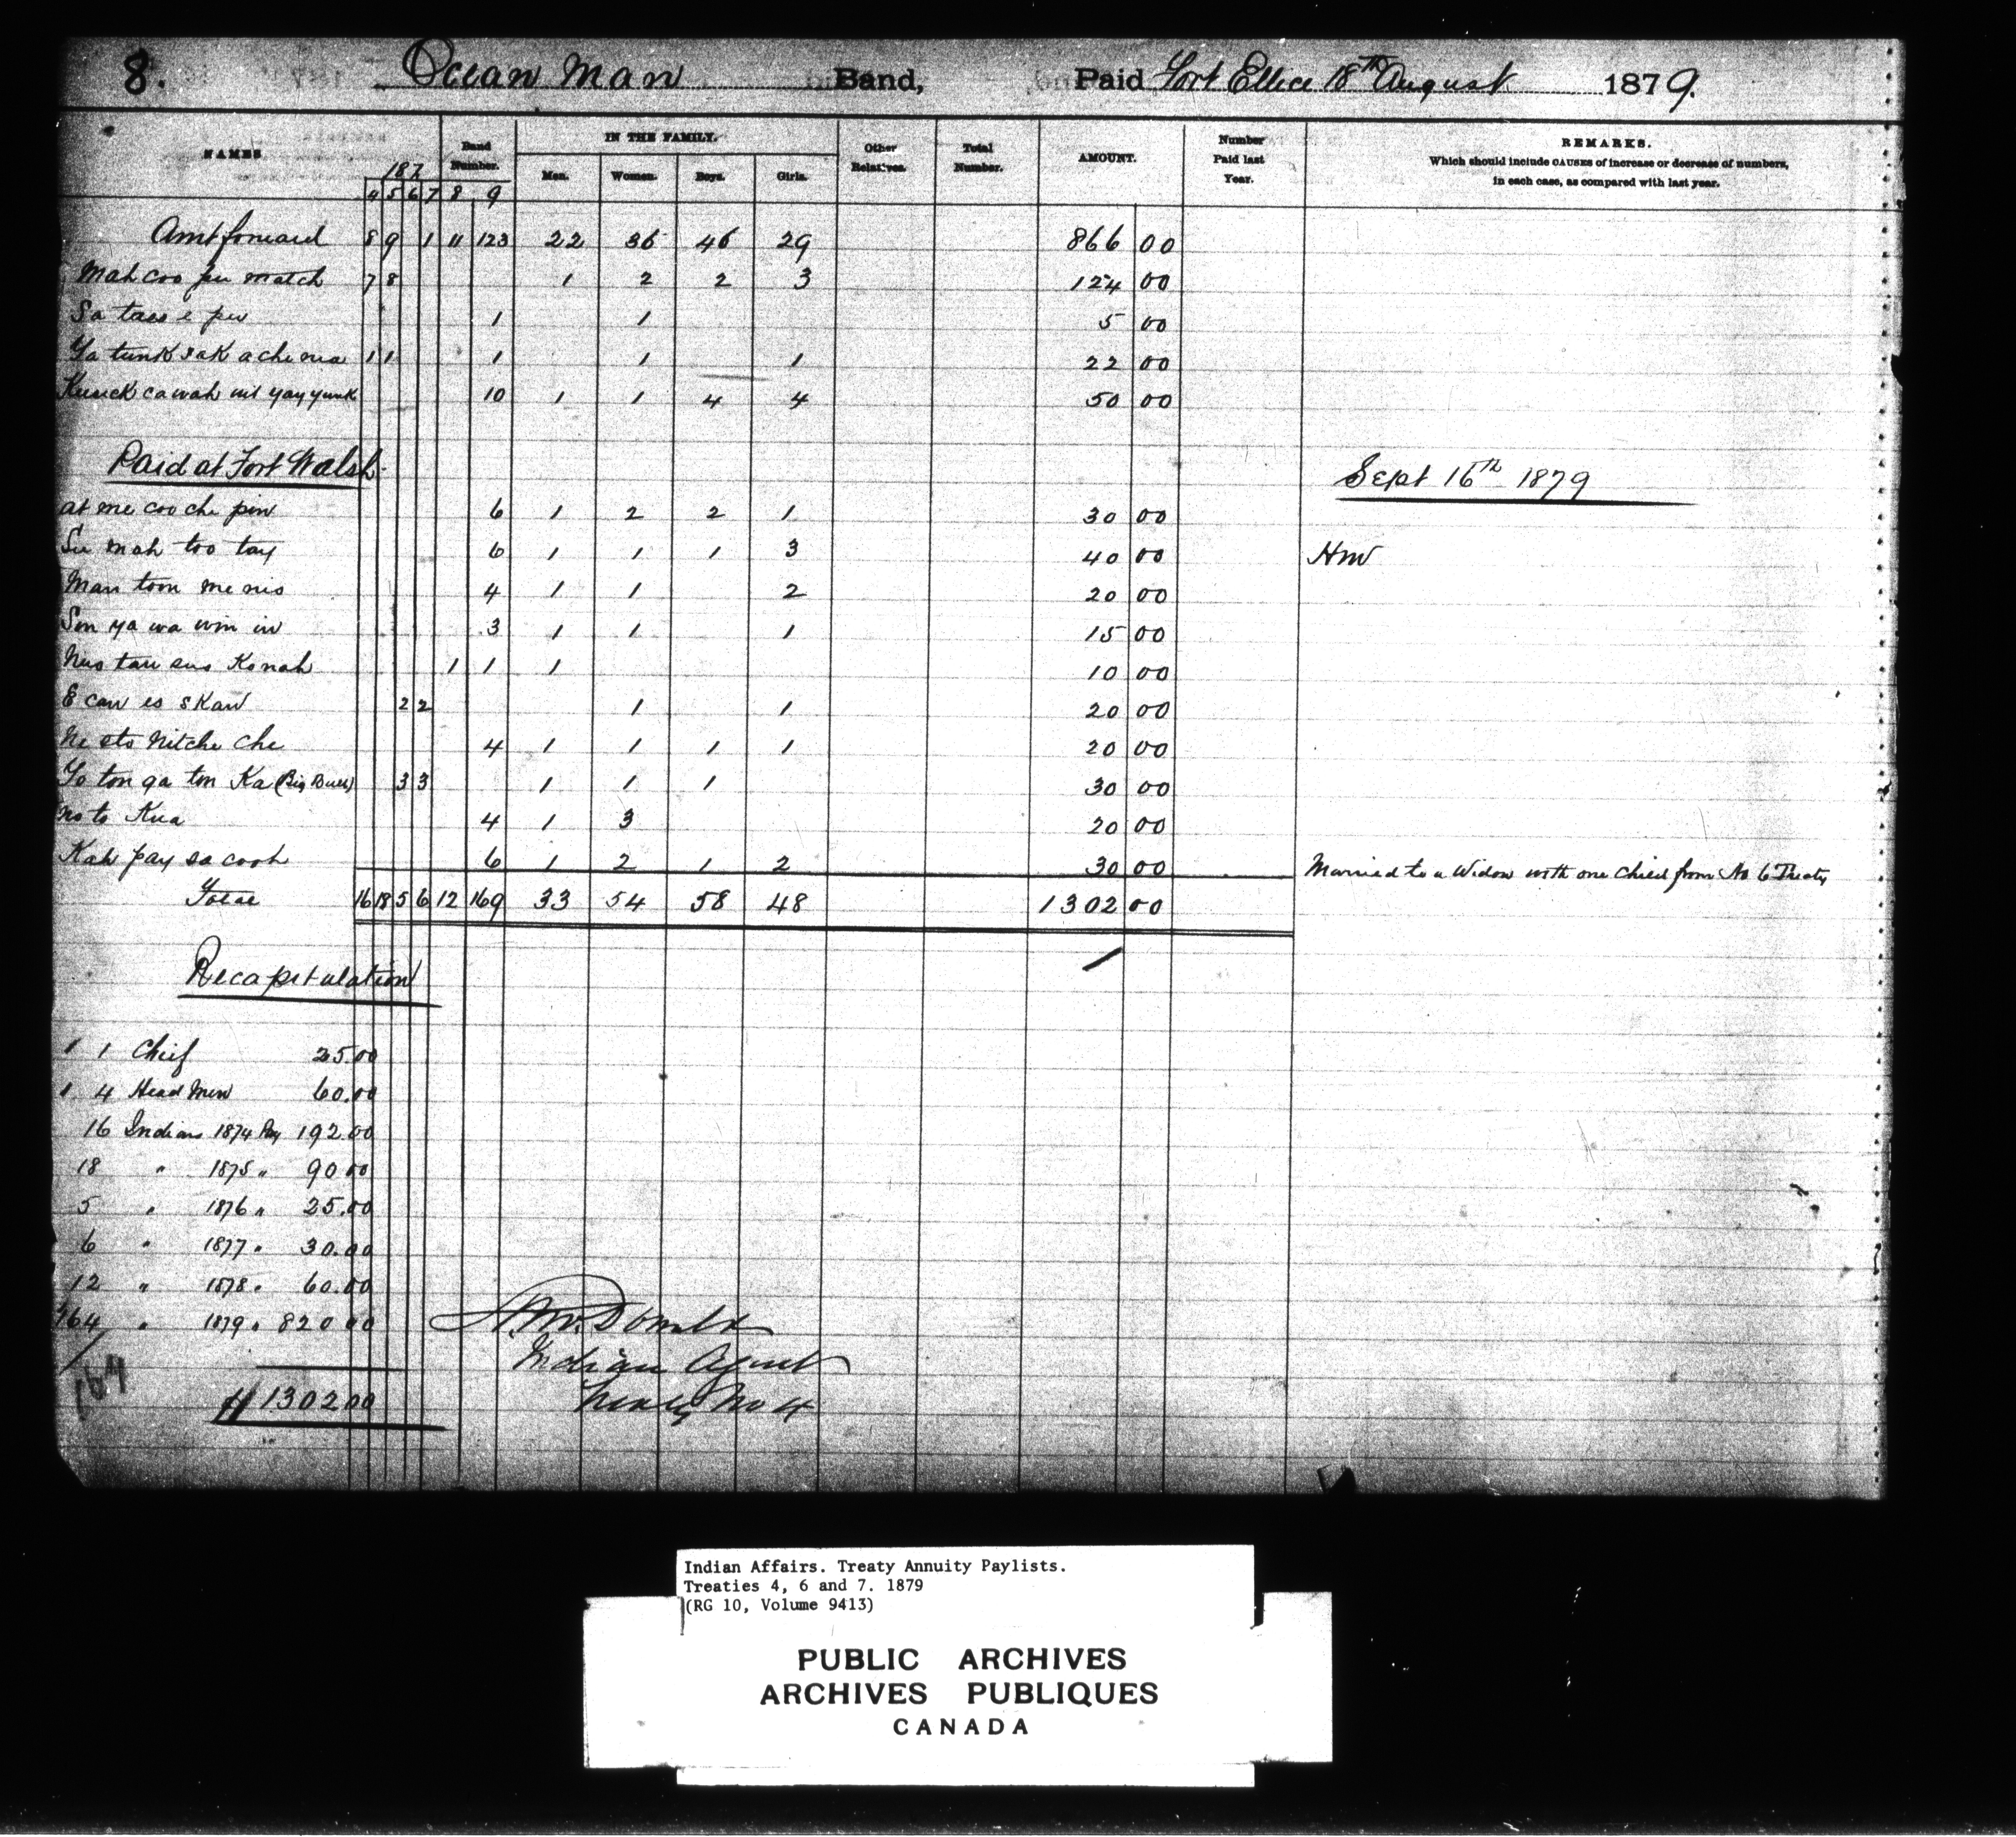 8. Ocean Man Band, Paid Fort Ellice 18th August 1879.
NAMES 187 Band Number. IN THE FAMILY. Other Relatives. Total Number. AMOUNT. Number Paid last Year. REMARKS.
Which should include CAUSES of increase or decrease of numbers,
in each case, as compared with last year.
4 5 6 7 8 9 Men. Women. Boys. Girls.
Amt forward 8 9 1 11 123 22 36 46 29 866 00
Mah coo pee match 7 8 1 2 2 3 124 00
Sa tass e pew 1 1 5 00
Ya tunk sak a che ma 1 1 1 1 1 22 00
Kusick ca wah wit yay yunk 10 1 1 4 4 50 00
Paid at Fort Walsh Sept 16th 1879
at me coo che pin 6 1 2 2 1 30 00
Su mah too tay 6 1 1 1 3 40 00 Hm
Man toom me nis 4 1 1 2 20 00
Son ya wa win in 3 1 1 1 15 00
Nus tau sus Ko nah 1 1 1 10 00
E caw es skaw 2 2 1 1 20 00
Ne sto Nitche Che 4 1 1 1 1 20 00
To ton ga ton Ka (Big Bull) 3 3 1 1 1 30 00
No to Kua 4 1 3 20 00
Kah pay sa cooh 6 1 2 1 2 30 00 Married to a Widow with one Child from No 6 Treaty
Total 16 18 5 6 12 169 33 54 58 48 1302 00
Recapitulation
1 1 Chief 25.00
1 4 Head Men 60.00
16 Indians 1874 Pay 192.00
18 " 1875 " 90.00
5 " 1876 " 25.00
6 " 1877 " 30.00
12 " 1878 " 60.00
164 " 1879 " 820.00
164
$1302.00
A. McDonald
Indian Agent
Treaty No 4
Indian Affairs. Treaty Annuity Paylists.
Treaties 4, 6 and 7. 1879
(RG 10, Volume 9413)
PUBLIC ARCHIVES
ARCHIVES PUBLIQUES
CANADA